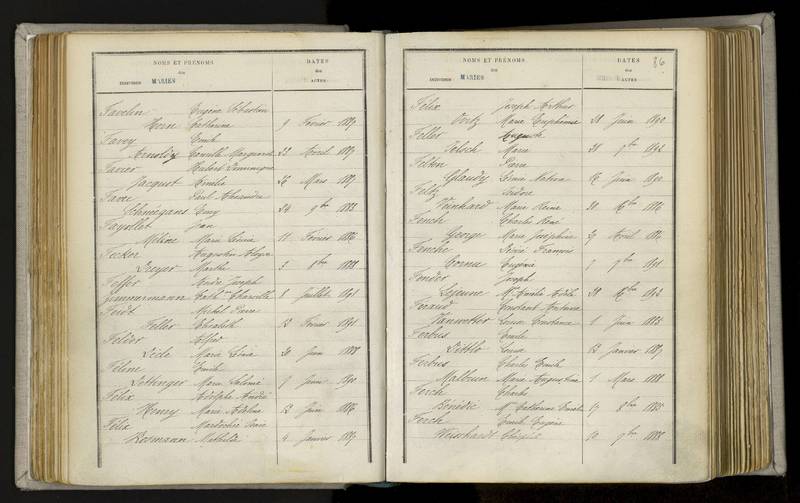 NOMS ET PRÉNOMS DATES
des des
INDIVIDUS MARIÉS ACTES
Favelin Eugène Sébastien
Hern Catherine 9 Février 1889
Favey Emile
Arnoldy Camille Marguerite 23 Avril 1889
Favier Hubert Dominique
Jacquot Emilie 26 Mars 1889
Favre Paul Alexandre
Schnégans Emy 24 9bre 1885
Fayollet Jean
Méline Marie Louise 11 Février 1886
Fecker Augustin Aloyse
Dreyer Marthe 3 8bre 1888
Feffer André Joseph
Zimmermann Cathne Charlotte 8 Juillet 1891
Feidt Michel Pierre
Feller Elisabeth 12 Février 1891
Felider Alfred
Dicle Marie Louise 20 Juin 1888
Félene Emile
Dettinger Marie Salomé 9 Juin 1890
Félix Adolphe André
Henry Marie Adeline 12 Juin 1886
Félix Mardochée
Bermann Mathilde 4 Janvier 1887
86
NOMS ET PRÉNOMS DATES
des des
INDIVIDUS MARIÉS ACTES
Félix Joseph Arthur
Oertz Marie Euphémie 28 Juin 1890
Feller Auguste
Pelsch Marie 28 9bre 1892
Felten Pierre
Glaudy 16 Juin 1890
Feltz Isidore
Weinhard Marie Reine 20 Xbre 1886
Fench Charles René
George Marie Joséphine 29 Avril 1884
Fenche Désiré François
Cornu Eugénie 7 9bre 1891
Fender Joseph
Lejeune Me Emilie Adèle 28 Xbre 1892
Feraud Constant Antoine
Vanwetter Louise Constance 1 Juin 1885
Ferbus Emile
Dittlo Louise 12 Janvier 1889
Ferbus Charles Emile
Malbrun Marie Augustine 1 Mars 1888
Ferch Charles
Bénédic Me Catherine Emélie 17 8bre 1885
Ferch Emile Eugène
Weisshardt 10 9bre 1888